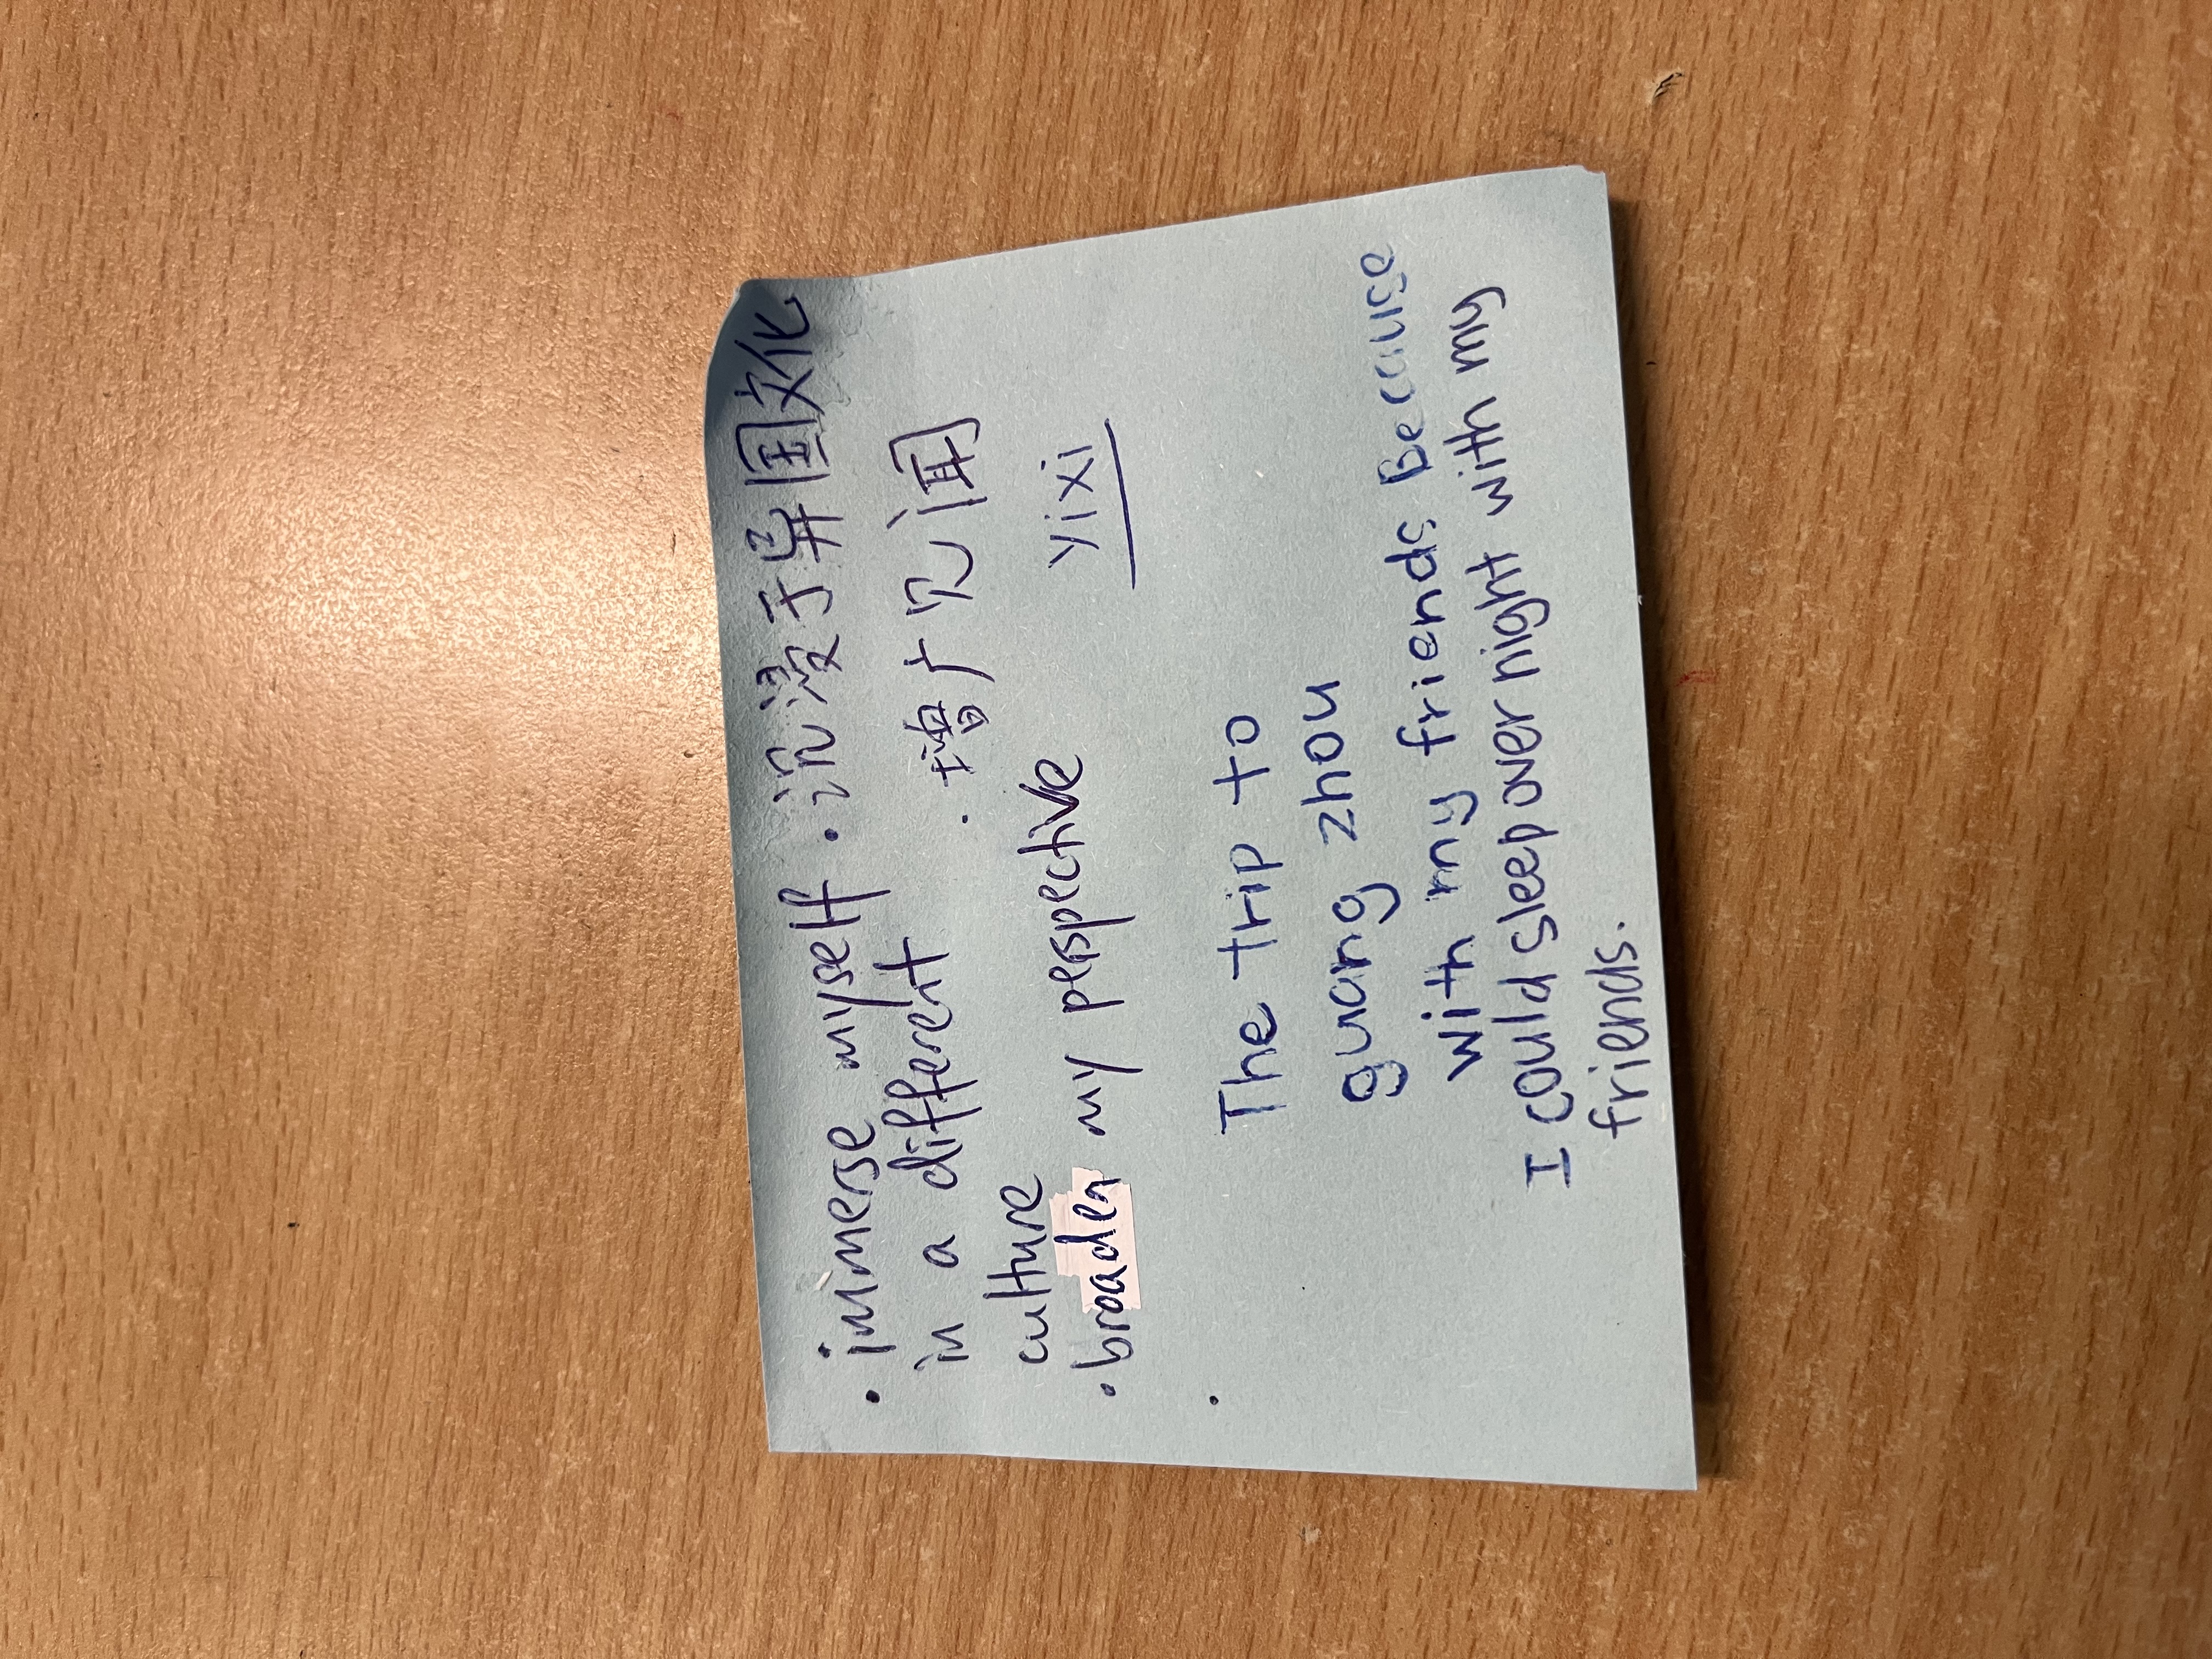 · immerse myself · 沉浸于异国文化
in a different · 增广见闻
culture
· broaden my perspective yixi
· The trip to
guang zhou
with my friends Because
I could sleep over night with my
friends.